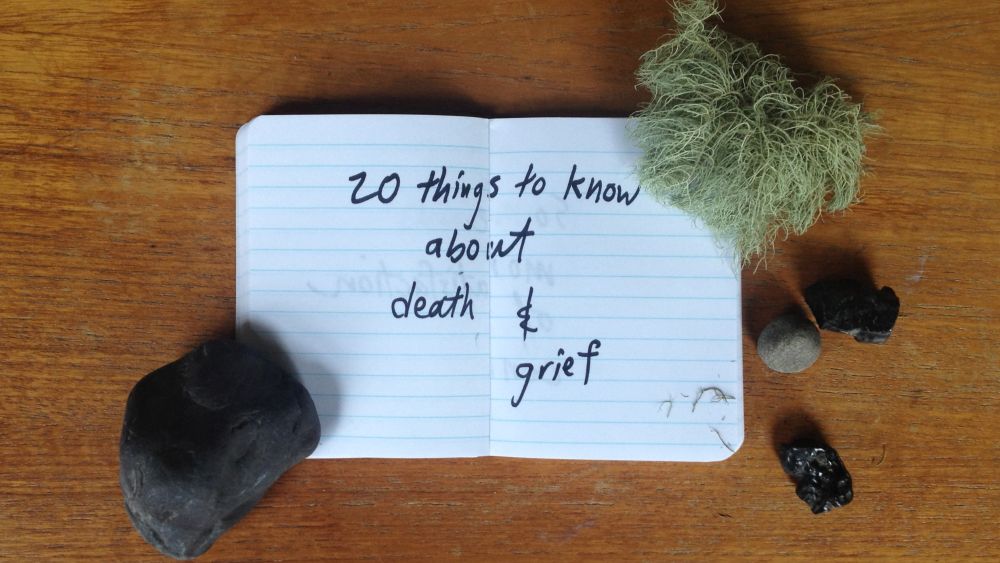 20 things to know
about
death &
grief